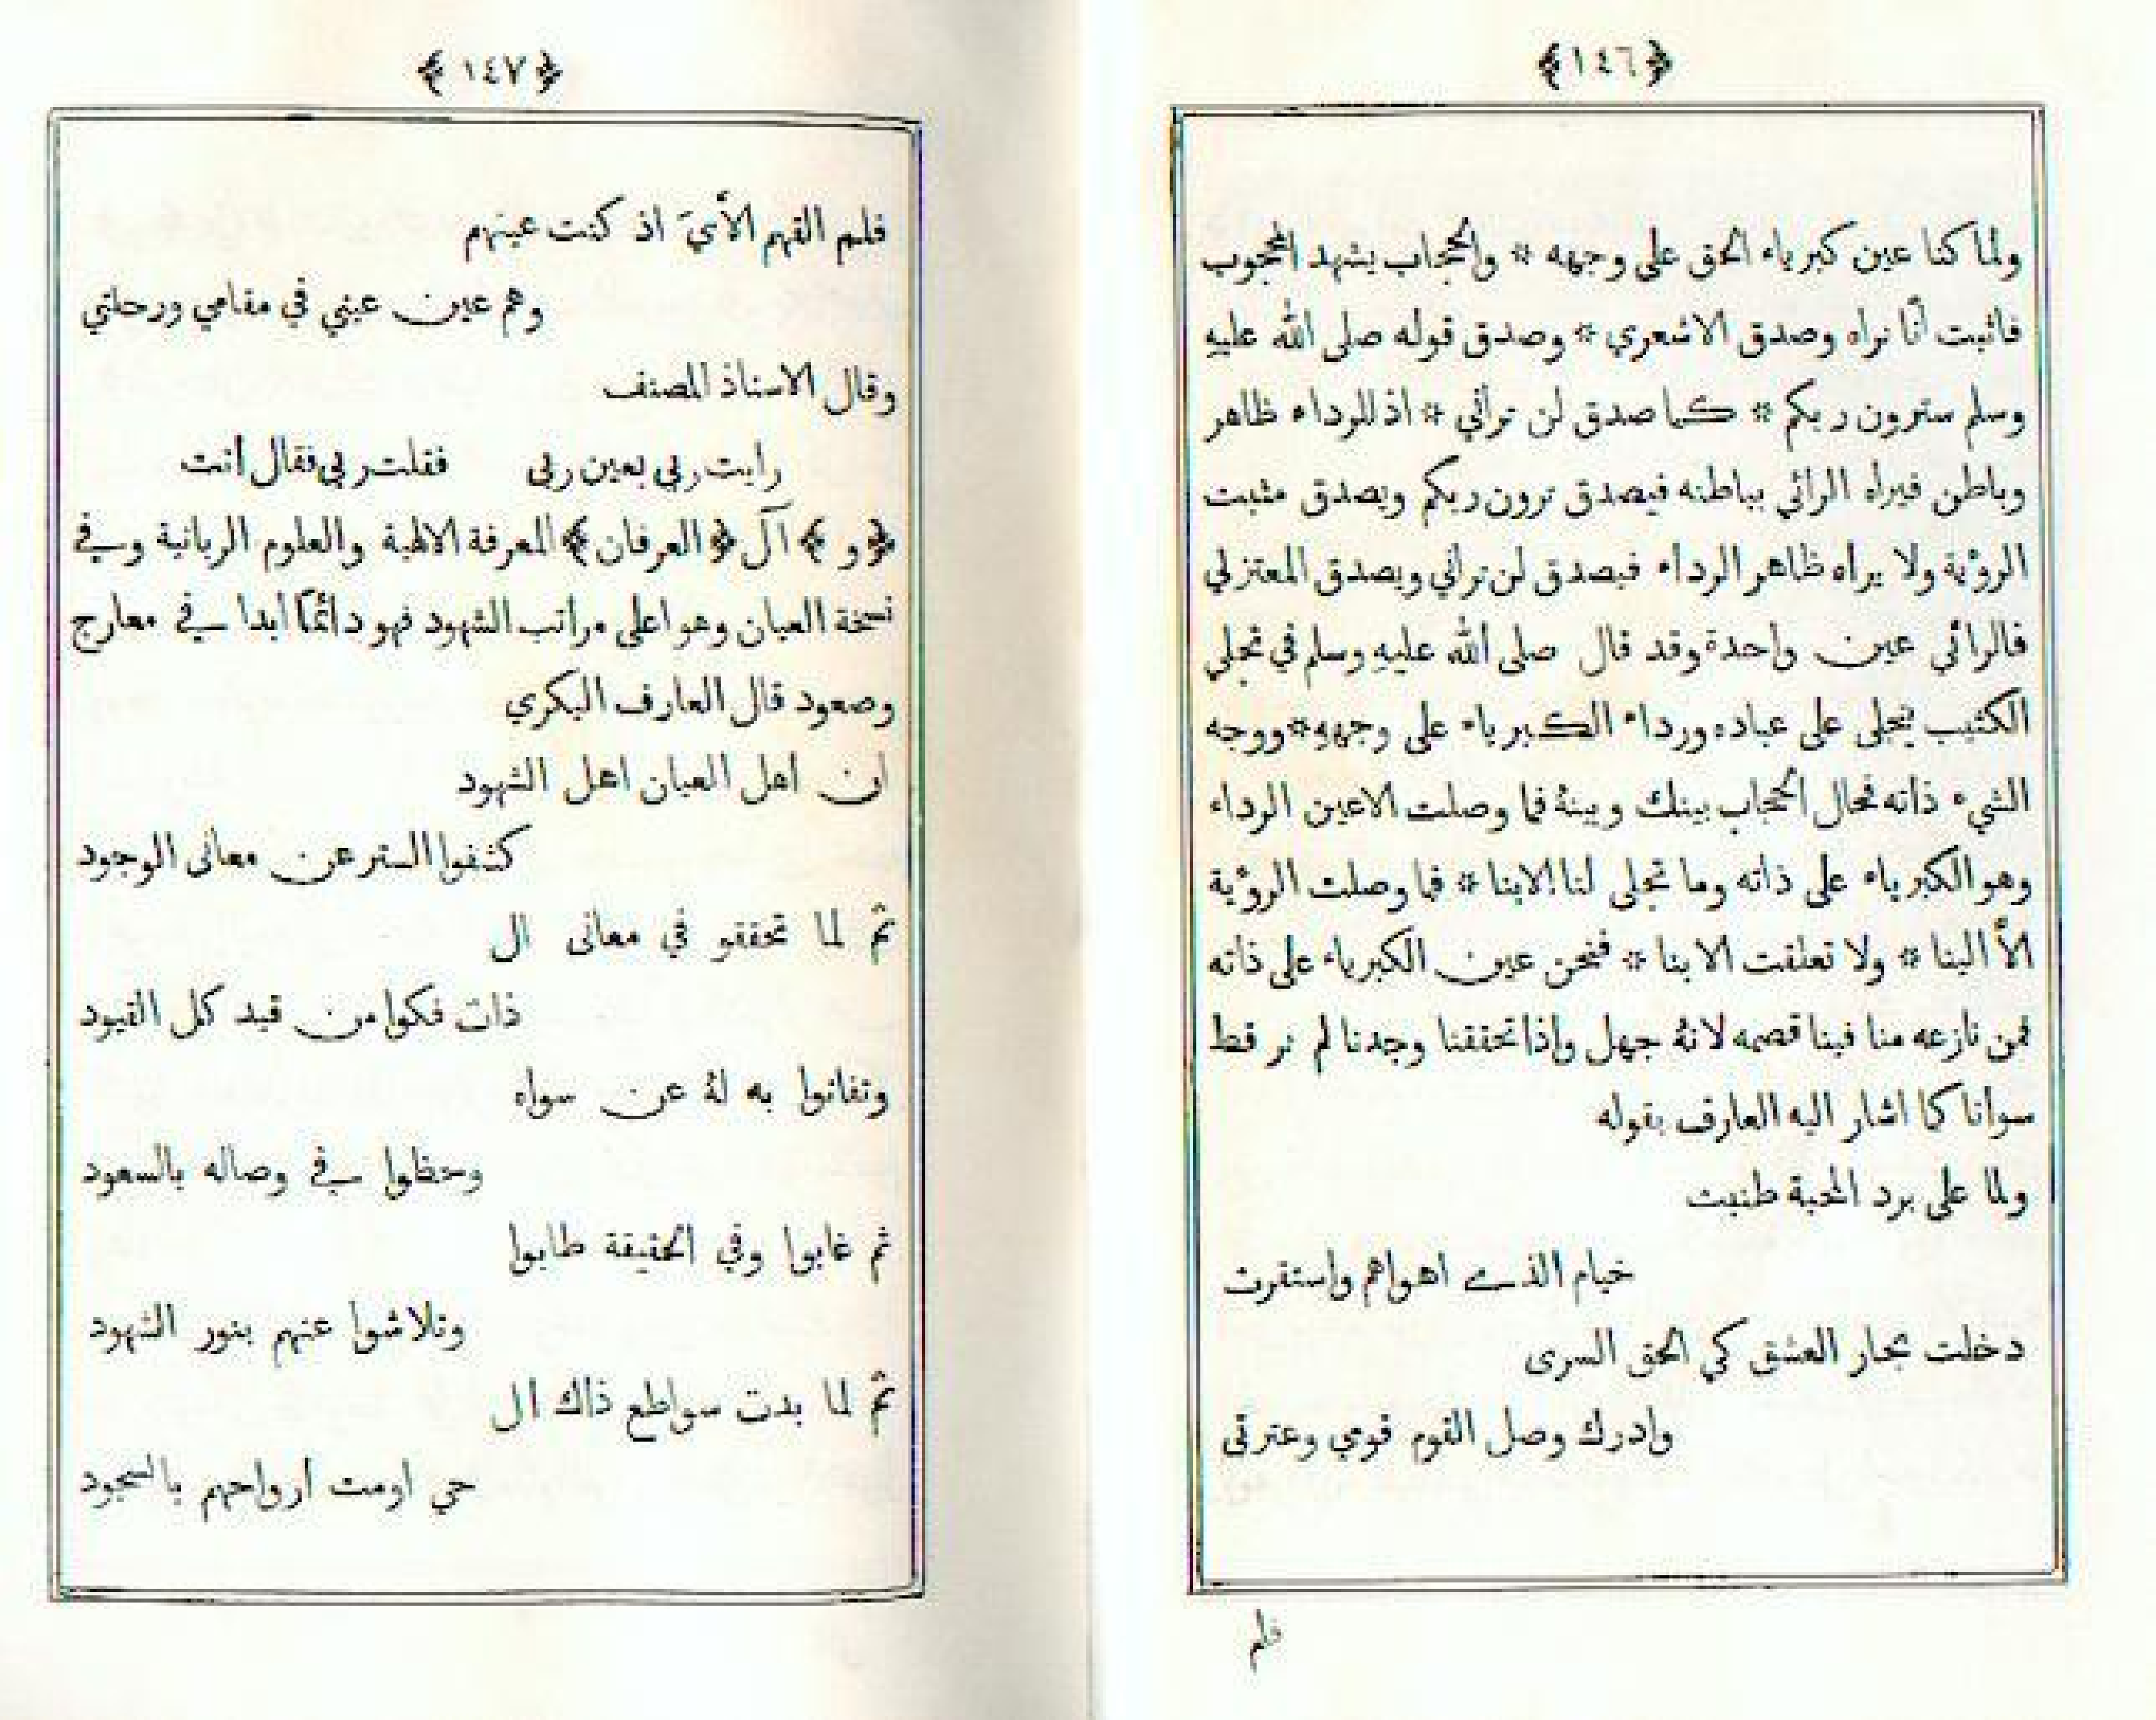 ﴿١٤٦﴾
ولما كنا عين كبرياء الحق على وجهه * والحجاب يشهد المحجوب
فاثبت أنا نراه وصدق الاشعري * وصدق قوله صلى الله عليه
وسلم سترون ربكم * كما صدق لن تراني * اذ للرداء ظاهر
وباطن فيراه الرائي بباطنه فيصدق ترون ربكم ويصدق مثبت
الرؤية ولا يراه ظاهر الرداء فيصدق لن تراني ويصدق المعتزلي
فالرائي عين واحدة وقد قال صلى الله عليه وسلم في تجلي
الكثيب يتجلى على عباده ورداء الكبرياء على وجهه * ووجه
الشيء ذاته فحال الحجاب بينك وبينهُ فما وصلت الاعين الرداء
وهو الكبرياء على ذاته وما تجلى لنا الابنا * فما وصلت الرؤية
الاَّ الينا * ولا تعلقت الا بنا * فنحن عين الكبرياء على ذاته
فمن نازعه منا فبنا قصمه لانهُ جهل واذا تحققنا وجدنا لم نر قط
سوانا كما اشار اليه العارف بقوله
ولما على برد المحبة طنبت
خيام الذي اهواهم واستقرت
دخلت بحار العشق كي الحق السرى
وادرك وصل القوم قومي وعترتى
فلم
﴿١٤٧﴾
فلم القهم الاَّيَ اذ كنت عينهم
وهم عين عيني في مقامي ورحلتي
وقال الاستاذ المصنف
رايت ربي بعين ربى فقلت ربي فقال أنت
﴿و﴾ آل ﴿العرفان﴾ المعرفة الالهية والعلوم الربانية وفي
نسخة العيان وهو اعلى مراتب الشهود فهو دائمًا ابدا في معارج
وصعود قال العارف البكري
ان اهل العيان اهل الشهود
كشفوا الستر عن معانى الوجود
ثم لما تحققو في معانى ال
ذات فكوا من قيد كل القيود
وتفانوا به لهُ عن سواه
وحظوا في وصاله بالسعود
ثم غابوا وفي الحقيقة طابوا
وتلاشوا عنهم بنور الشهود
ثم لما بدت سواطع ذاك ال
حي اومت ارواحهم بالسجود